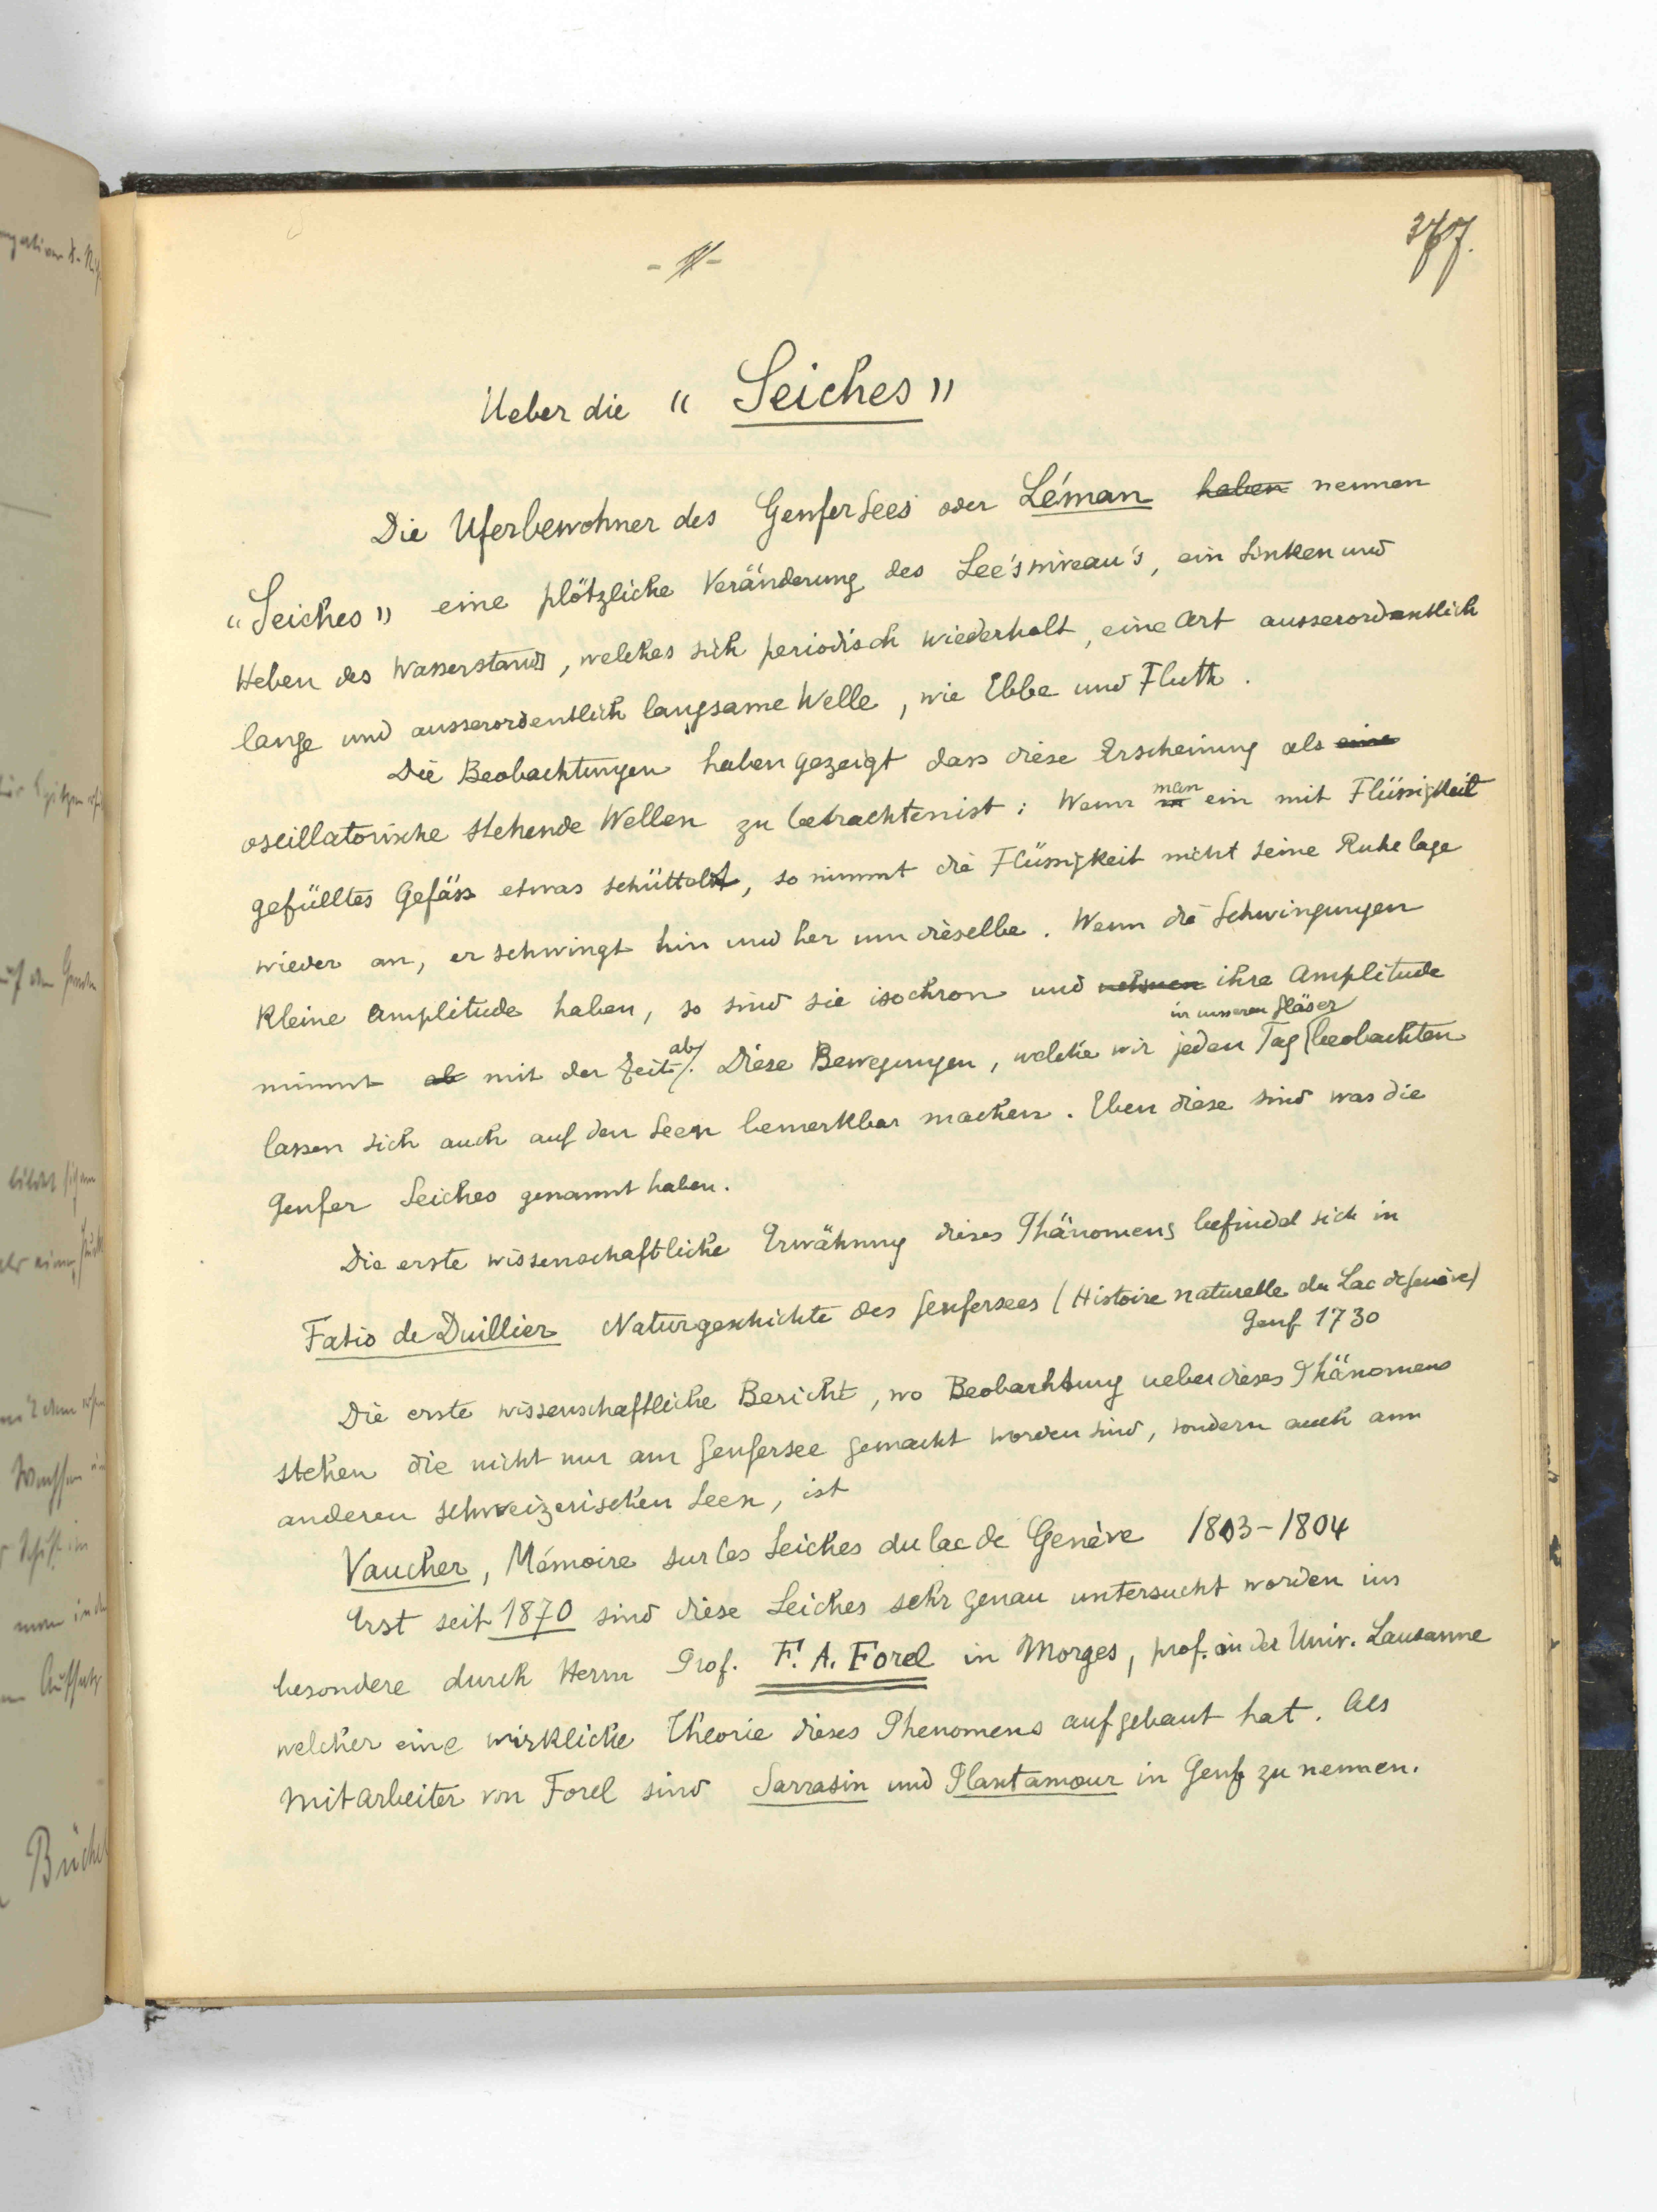 377.
- 1 -
Ueber die " Seiches "
Die Uferbewohner des Genfersees oder Léman haben nennen
"Seiches" eine plötzliche Veränderung des See'sniveau's, ein Sinken und
Heben des Wasserstands, welches sich periodisch wiederholt, eine Art ausserordentlich
lange und ausserordentlich langsame Welle, wie Ebbe und Fluth.
Die Beobachtungen haben gezeigt dass diese Erscheinung als eine
oscillatorische stehende Wellen zu betrachten ist: Wenn man ein mit Flüssigkeit
gefülltes Gefäss etwas schüttelt, so nimmt die Flüssigkeit nicht seine Ruhelage
wieder an, er schwingt hin und her um dieselbe. Wenn die Schwingungen
kleine Amplitude haben, so sind sie isochron und nehmen ihre Amplitude
in unseren Gläser
nimmt ab mit der Zeit ab. Diese Bewegungen, welche wir jeden Tag beobachten
lassen sich auch auf den Seen bemerkbar machen. Eben diese sind was die
Genfer Seiches genannt haben.
Die erste wissenschaftliche Erwähnung dieses Phänomens befindet sich in
Fatio de Duillier Naturgeschichte des Genfersees (Histoire naturelle du Lac de Genève)
Genf 1730
Die erste wissenschaftliche Bericht, wo Beobachtung ueber dieses Phänomens
stehen die nicht nur am Genfersee gemacht worden sind, sondern auch am
anderen schweizerischen Seen, ist
Vaucher, Mémoire sur les Seiches du lac de Genève 1803-1804
Erst seit 1870 sind diese Seiches sehr genau untersucht worden ins
besondere durch Herrn Prof. F. A. Forel in Morges, prof. an der Univ. Lausanne
welcher eine wirkliche Theorie dieses Phenomens aufgebaut hat. Als
Mitarbeiter von Forel sind Sarrasin und Plantamour in Genf zu nennen.